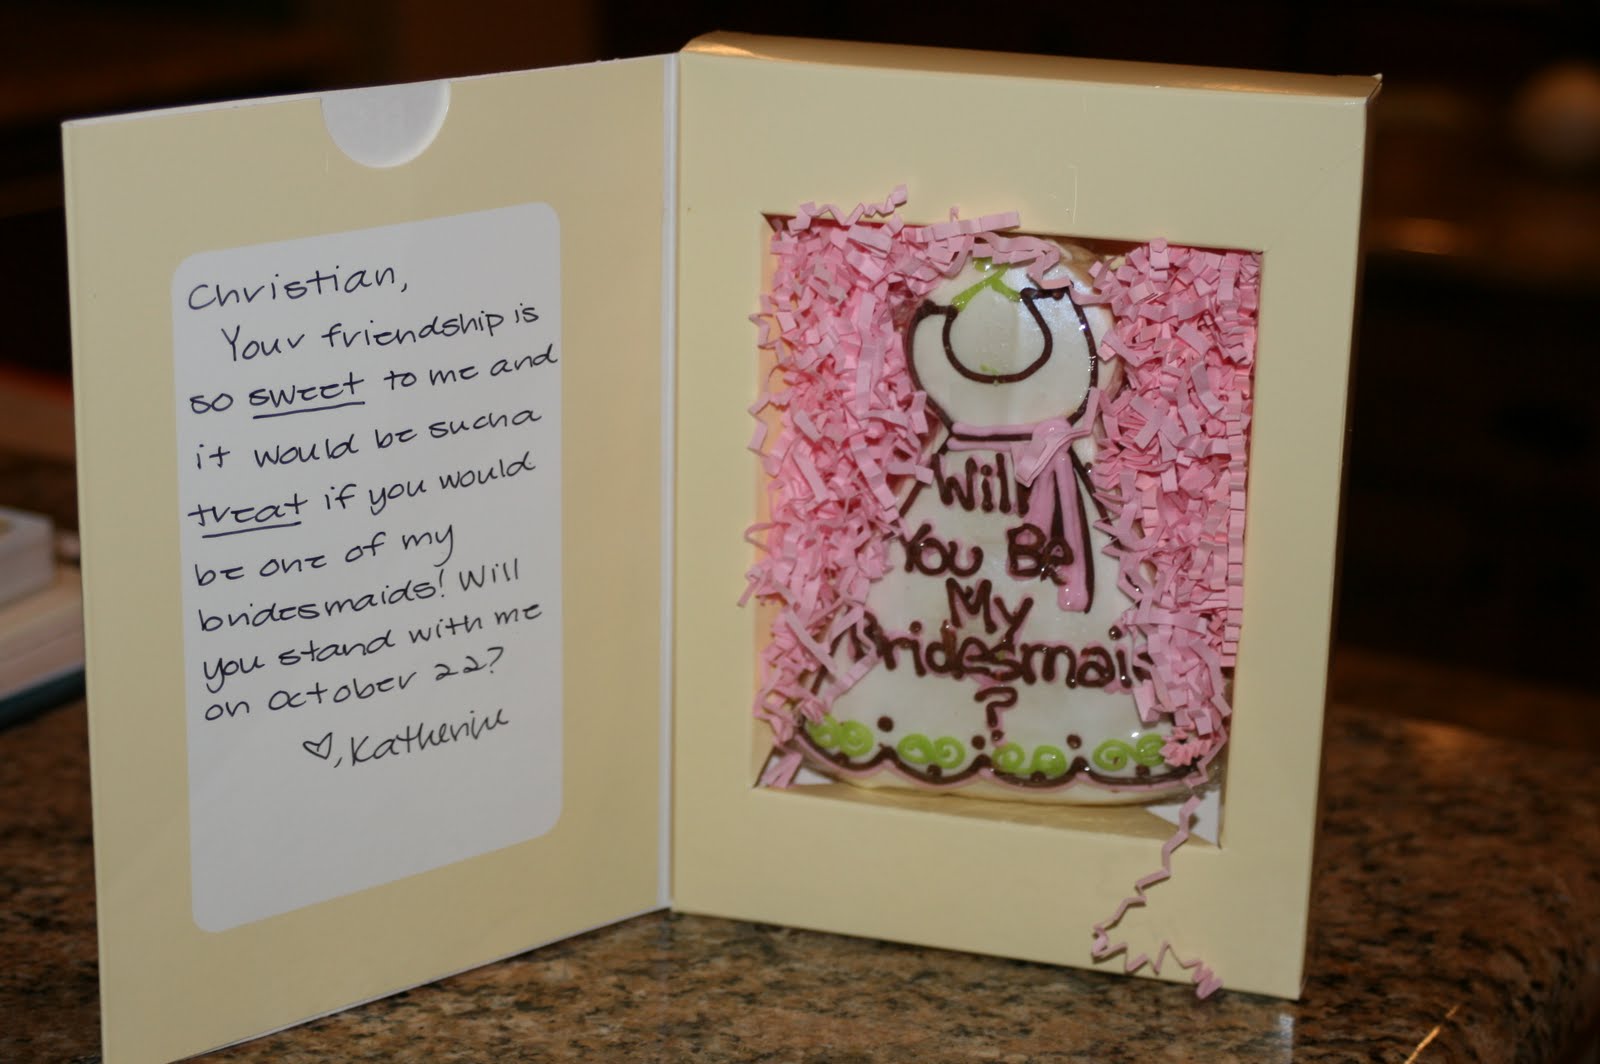 Christian,
Your friendship is
so sweet to me and
it would be such a
treat if you would
be one of my
bridesmaids! Will
you stand with me
on October 22?
♡, Katherine
Will
You Be
My
Bridesmaid
?